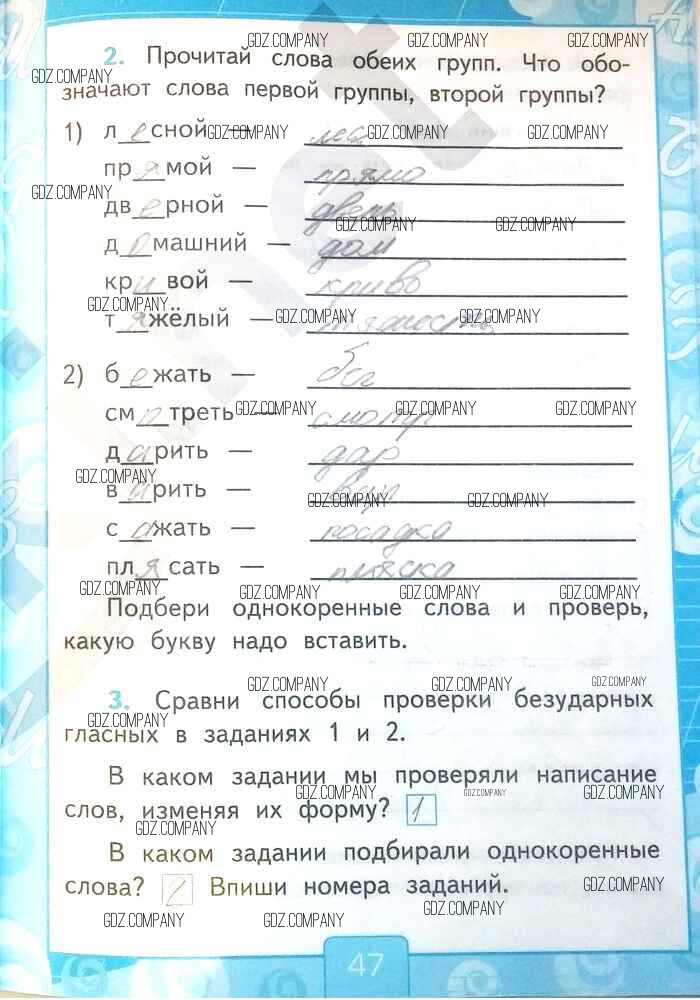 2. Прочитай слова обеих групп. Что обо-
значают слова первой группы, второй группы?
1) лесной — лес
прямой — прямо
дверной — дверь
домашний — дом
кривой — криво
тяжёлый — тяжесть
2) бежать — бег
смотреть — смотр
дарить — дар
варить — вар
сажать — посадка
плясать — пляска
Подбери однокоренные слова и проверь,
какую букву надо вставить.
3. Сравни способы проверки безударных
гласных в заданиях 1 и 2.
В каком задании мы проверяли написание
слов, изменяя их форму? 1
В каком задании подбирали однокоренные
слова? 2 Впиши номера заданий.
47
GDZ.COMPANY